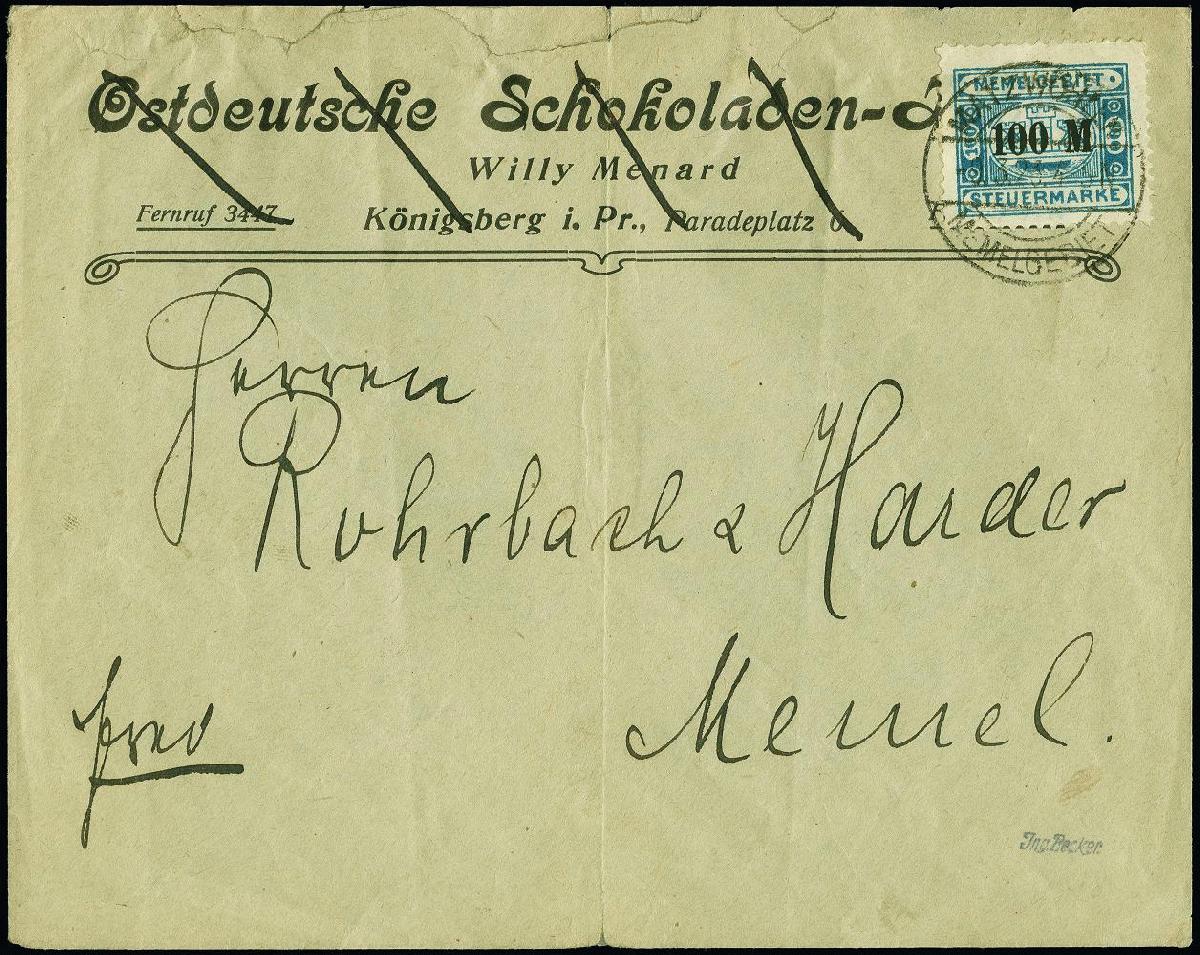 Ostdeutsche Schokoladen-
Willy Menard
Fernruf 3447
Königsberg i. Pr., Paradeplatz 6
MEMELGEBIET
100
100 M
STEUERMARKE
MEMELGEBIET
Herren
Rohrbach & Harder
Memel.
frei
Ing. Becker